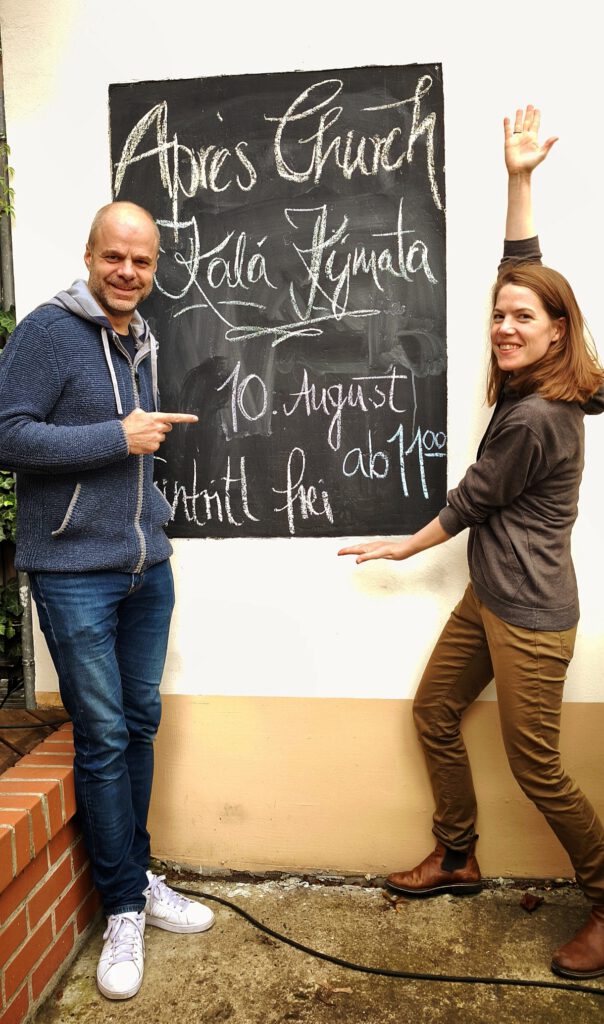 Après Church
Kalá Kýmata
10. August
ab 11⁰⁰
Eintritt frei